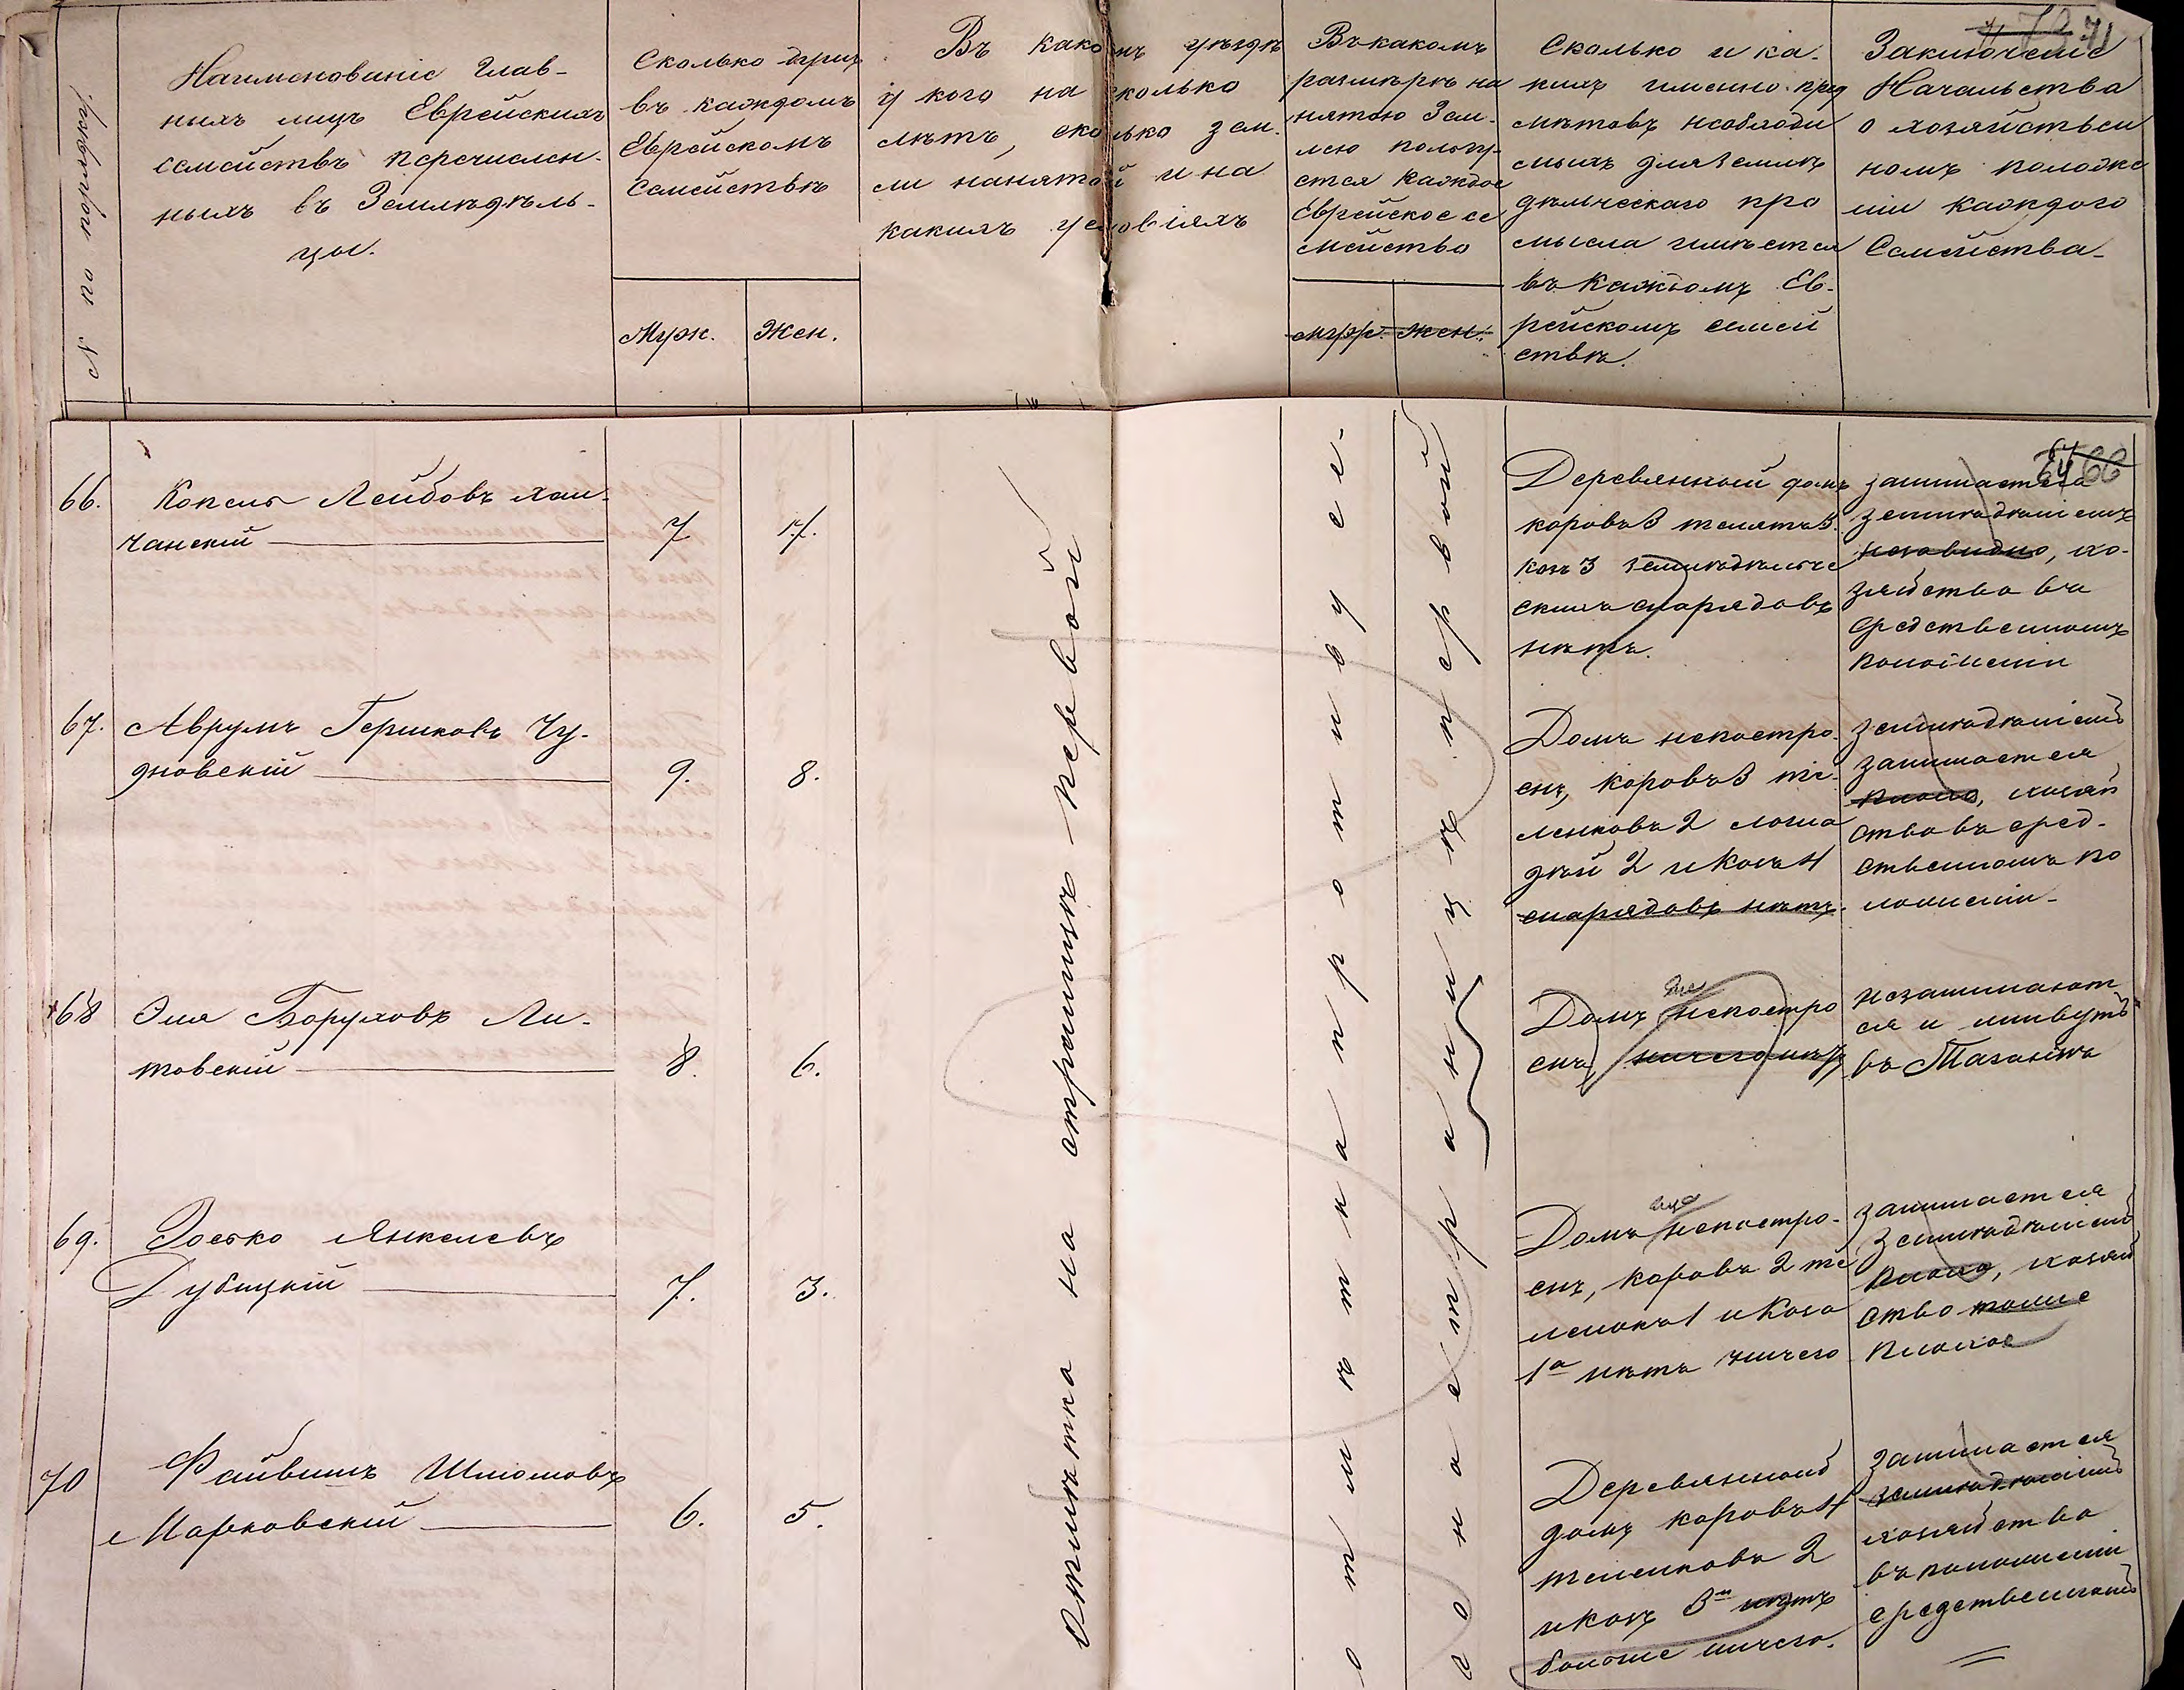 № по порядку.
Наименованіе глав-
ныхъ лицъ Еврейскихъ
семействъ перечислен-
ныхъ въ Земледѣль-
цы.
Сколько душъ
въ каждомъ
Еврейскомъ
семействѣ
Муж.
Жен.
Въ какомъ уѣздѣ
у кого на сколько
лѣтъ, сколько зем-
ли нанятой и на
какихъ условіяхъ
Въ какомъ
размѣрѣ на
нятою Зем-
лею пользу-
ется каждое
Еврейское се
мейство
муж. жен.
Сколько и ка-
кихъ именно пред
мѣтовъ необходи
мыхъ для земле
дѣльческаго про
мысла имѣется
въ каждомъ Ев-
рейскомъ семей
ствѣ.
Заключеніе
Начальства
о хозяйствен
номъ положе
ніи каждого
Семейства.
71
66
66.
Копель Лейбовъ Хан-
чанскій
7
7.
Деревянной домъ
коровъ 3 телятъ 3.
козъ 3 земледѣльче
скихъ снарядовъ
нѣтъ.
занимается
земледѣліемъ
, хо-
зяйство въ
средственномъ
положеніи
67.
Аврумъ Гершковъ Чу-
дновскій
9.
8.
Домъ непостро-
енъ, коровъ 3 те-
ленковъ 2 лоша
дей 2 и козъ 4
снарядовъ нѣтъ.
земледѣліемъ
занимается
плохо, хозяй
ство въ сред-
ственномъ по
ложеніи.
68
Эля Боруховъ Ли-
товскій
8.
6.
Домъ непостро
енъ, ничего нѣтъ
незанимают
ся и живутъ
въ
69.
Іосько Янкелевъ
Дубицкій
7.
3.
еще
Домъ непостро-
енъ, коровъ 2 те
ленокъ 1 и коза
1а нѣтъ ничего
занимается
земледѣліемъ
плохо, хозяй
ство тоже
плохое
70
Файвишъ Шлiомовъ
Марковскій
6.
5.
Деревянной
домъ коровъ 4
теленковъ 2
и козъ 3и нѣтъ
больше ничего.
занимается
земледѣліемъ
хозяйство
въ положеніи
средственномъ
Отмѣтка на страницѣ первой
отмѣтка противу се-
го на страницѣ первой